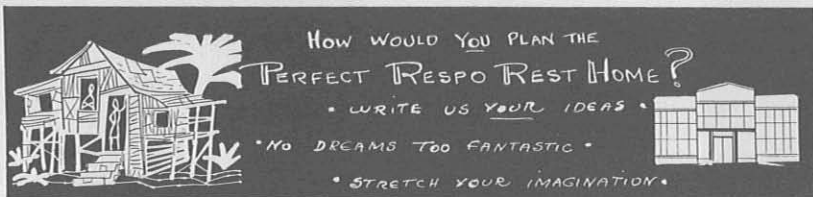 HOW WOULD YOU PLAN THE
PERFECT RESPO REST HOME?
• WRITE US YOUR IDEAS •
• NO DREAMS TOO FANTASTIC •
• STRETCH YOUR IMAGINATION •